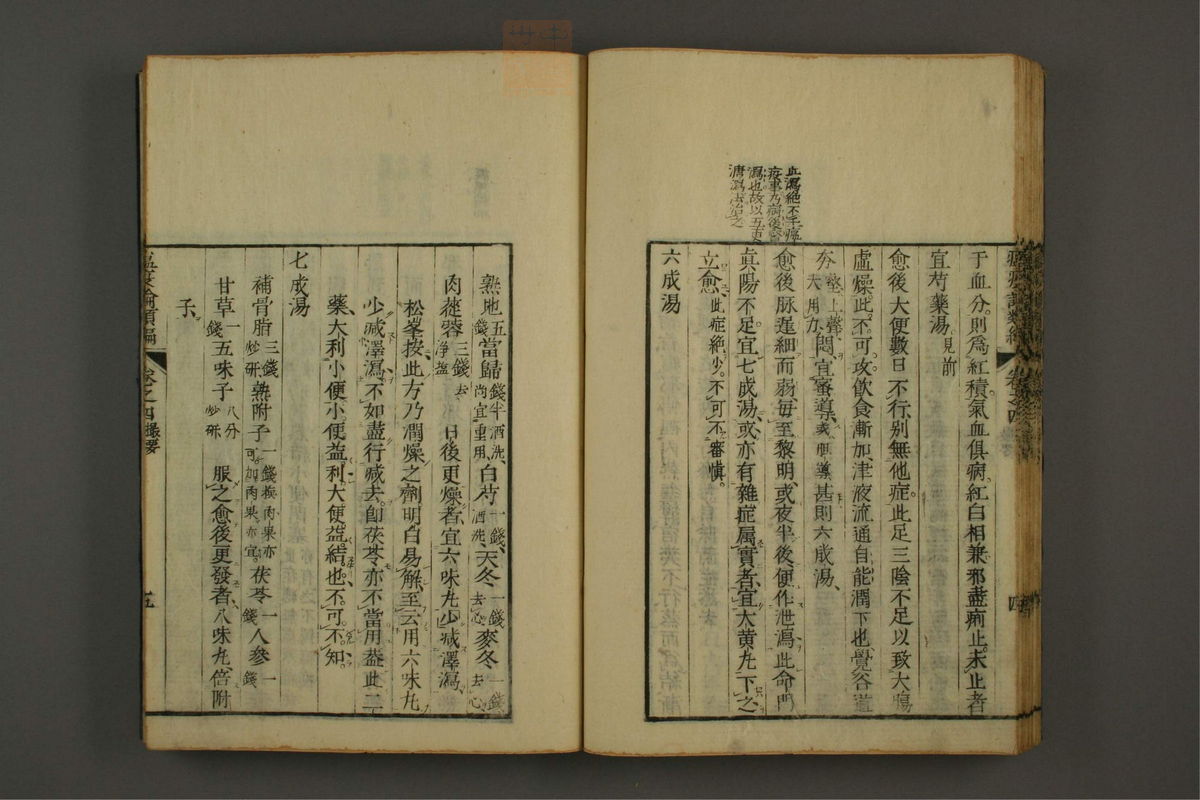 血瀉絶不手瘧
疫事乃病後
瀉也故以五更
溏瀉去治之
于血分則爲紅積氣血俱病紅白相兼邪盡痢止未止者
宜芍藥湯見前
愈後大便數日不行別無他症此足三陰不足以致大腸
虛燥此不可攻飲食漸加津液流通自能潤下也覺谷道
夯悶宜蜜導甚則六成湯
愈後脉遲細而弱毎至黎明或夜半後便作泄瀉此命門
眞陽不足宜七成湯或亦有雜症属實者宜大黄丸下之
立愈此症絶少不可不審慎
六成湯
四
熟地五錢當歸錢半酒洗尚宜重用白芍一錢酒洗天冬一錢去心麥冬一錢去心
肉蓯蓉三錢去浄鹽日後更燥者宜六味丸少减澤瀉
松峯按此方乃潤燥之劑明白易解至云用六味丸
少减澤瀉不如盡行减去卽茯苓亦不當用葢此二
藥大利小便小便益利大便益結也不可不知
七成湯
補骨脂三錢炒研熟附子一錢茯苓一錢人參一錢
甘草一錢五味子八分炒研服之愈後更發者八味丸倍附
子
卷之四撮要
五